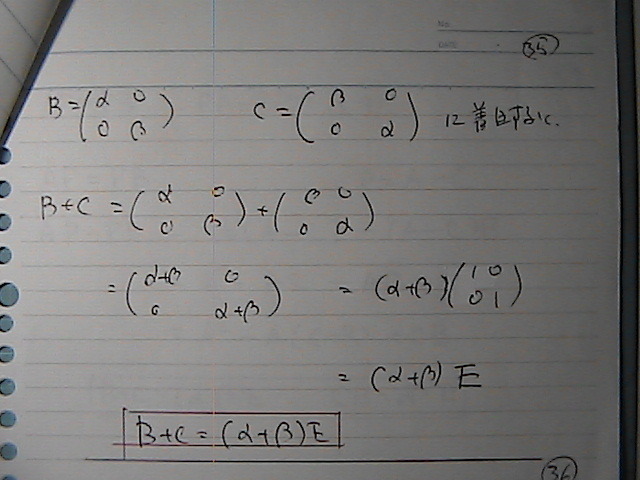 No.
DATE
35
B = (α 0 / 0 β) C = (β 0 / 0 α) に着目すると.
B+C = (α 0 / 0 β) + (β 0 / 0 α)
= (α+β 0 / 0 α+β) = (α+β)(1 0 / 0 1)
= (α+β) E
B+C = (α+β) E
36